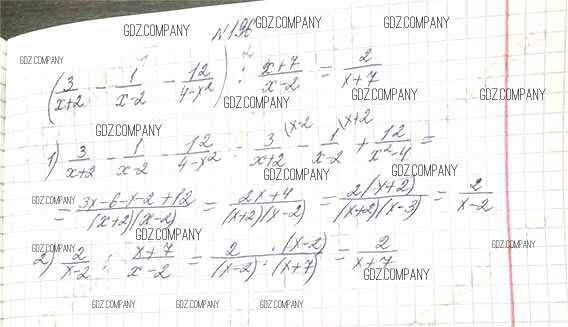 GDZ.COMPANY GDZ.COMPANY GDZ.COMPANY
№196
GDZ.COMPANY
(3/(x+2) - 1/(x-2) - 12/(4-x²)) : (x+7)/(x-2) = 2/(x+7)
GDZ.COMPANY GDZ.COMPANY GDZ.COMPANY
GDZ.COMPANY
1) 3/(x+2) - 1/(x-2) - 12/(4-x²) = 3/(x+2) (x-2 - 1/(x-2) (x+2 + 12/(x²-4) =
GDZ.COMPANY GDZ.COMPANY GDZ.COMPANY
= (3x-6-x-2+12)/((x+2)(x-2)) = (2x+4)/((x+2)(x-2)) = 2(x+2)/((x+2)(x-3)) = 2/(x-2)
GDZ.COMPANY GDZ.COMPANY
2) 2/(x-2) : (x+7)/(x-2) = (2 · (x-2))/((x-2) · (x+7)) = 2/(x+7)
GDZ.COMPANY
GDZ.COMPANY GDZ.COMPANY GDZ.COMPANY